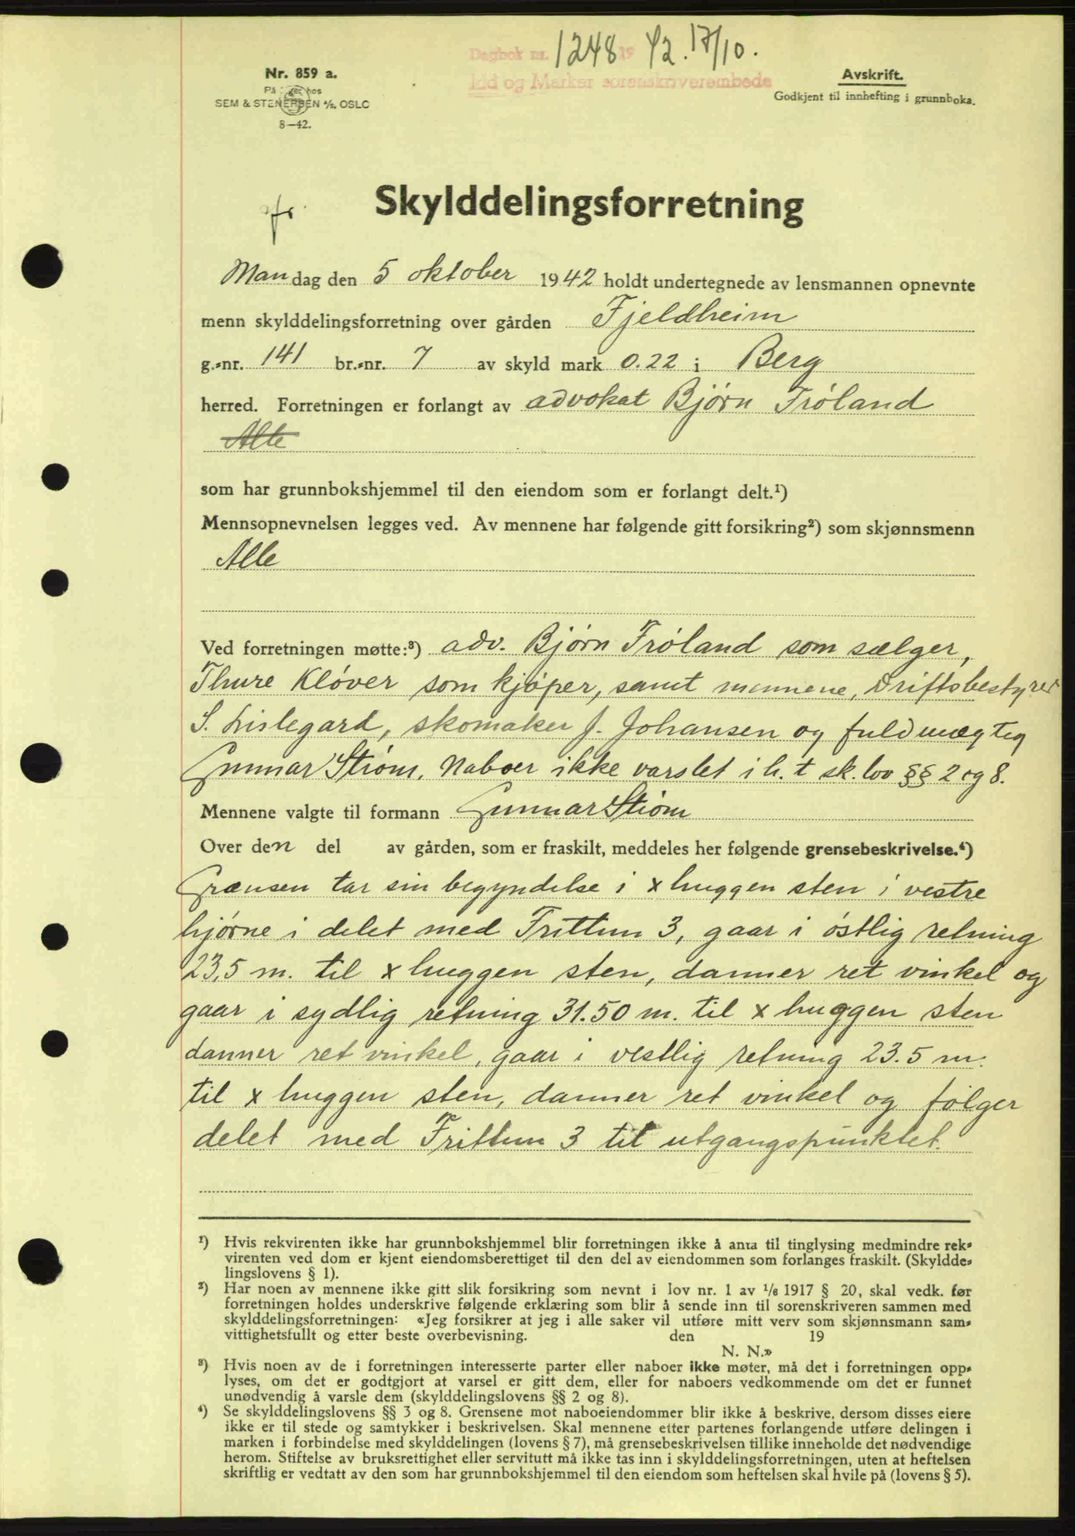 Dagbok nr. 1248 19 42. 17/10.
Idd og Marker sorenskriverembede
Nr. 859 a.
På lager hos
SEM & STENERSEN A/S, OSLO
8—42.
Avskrift.
Godkjent til innhefting i grunnboka.
Skylddelingsforretning
Mandag den 5 oktober 1942 holdt undertegnede av lensmannen opnevnte
menn skylddelingsforretning over gården Fjeldheim
g.-nr. 141 br.-nr. 7 av skyld mark 0.22 i Berg
herred. Forretningen er forlangt av advokat Bjørn Frøland
Alle
som har grunnbokshjemmel til den eiendom som er forlangt delt.¹)
Mennsopnevnelsen legges ved. Av mennene har følgende gitt forsikring²) som skjønnsmenn
Alle
Ved forretningen møtte:³) adv. Bjørn Frøland som sælger,
Thure Kløver som kjøper, samt mennene, Driftsbestyrer
S. Lislegard, skomaker J. Johansen og fuldmægtig
Gunnar Strøm. Naboer ikke varslet i h. t sk. lov §§ 2 og 8.
Mennene valgte til formann Gunnar Strøm
Over den del av gården, som er fraskilt, meddeles her følgende grensebeskrivelse.⁴)
Grænsen tar sin begyndelse i x huggen sten i vestre
hjørne i delet med Frittun 3, gaar i østlig retning
23,5 m. til x huggen sten, danner ret vinkel og
gaar i sydlig retning 31.50 m. til x huggen sten
danner ret vinkel, gaar i vestlig retning 23.5 m.
til x huggen sten, danner ret vinkel og følger
delet med Frittun 3 til utgangspunktet.
¹) Hvis rekvirenten ikke har grunnbokshjemmel blir forretningen ikke å anta til tinglysing medmindre rek-
virenten ved dom er kjent eiendomsberettiget til den del av eiendommen som forlanges fraskilt. (Skyldde-
lingslovens § 1).
²) Har noen av mennene ikke gitt slik forsikring som nevnt i lov nr. 1 av 1/6 1917 § 20, skal vedk. før
forretningen holdes underskrive følgende erklæring som blir å sende inn til sorenskriveren sammen med
skylddelingsforretningen: «Jeg forsikrer at jeg i alle saker vil utføre mitt verv som skjønnsmann sam-
vittighetsfullt og etter beste overbevisning. den 19
N. N.»
³) Hvis noen av de i forretningen interesserte parter eller naboer ikke møter, må det i forretningen opp-
lyses, om det er godtgjort at varsel er gitt dem, eller for naboers vedkommende om det er funnet
unødvendig å varsle dem (skylddelingslovens §§ 2 og 8).
⁴) Se skylddelingslovens §§ 3 og 8. Grensene mot naboeiendommer blir ikke å beskrive, dersom disses eiere
ikke er til stede og samtykker i beskrivelsen. Skal mennene etter partenes forlangende utføre delingen i
marken i forbindelse med skylddelingen (lovens § 7), må grensebeskrivelsen tillike inneholde det nødvendige
herom. Stiftelse av bruksrettighet eller servitutt må ikke tas inn i skylddelingsforretningen, uten at heftelsen
skriftlig er vedtatt av den som har grunnbokshjemmel til den eiendom som heftelsen skal hvile på (lovens § 5).